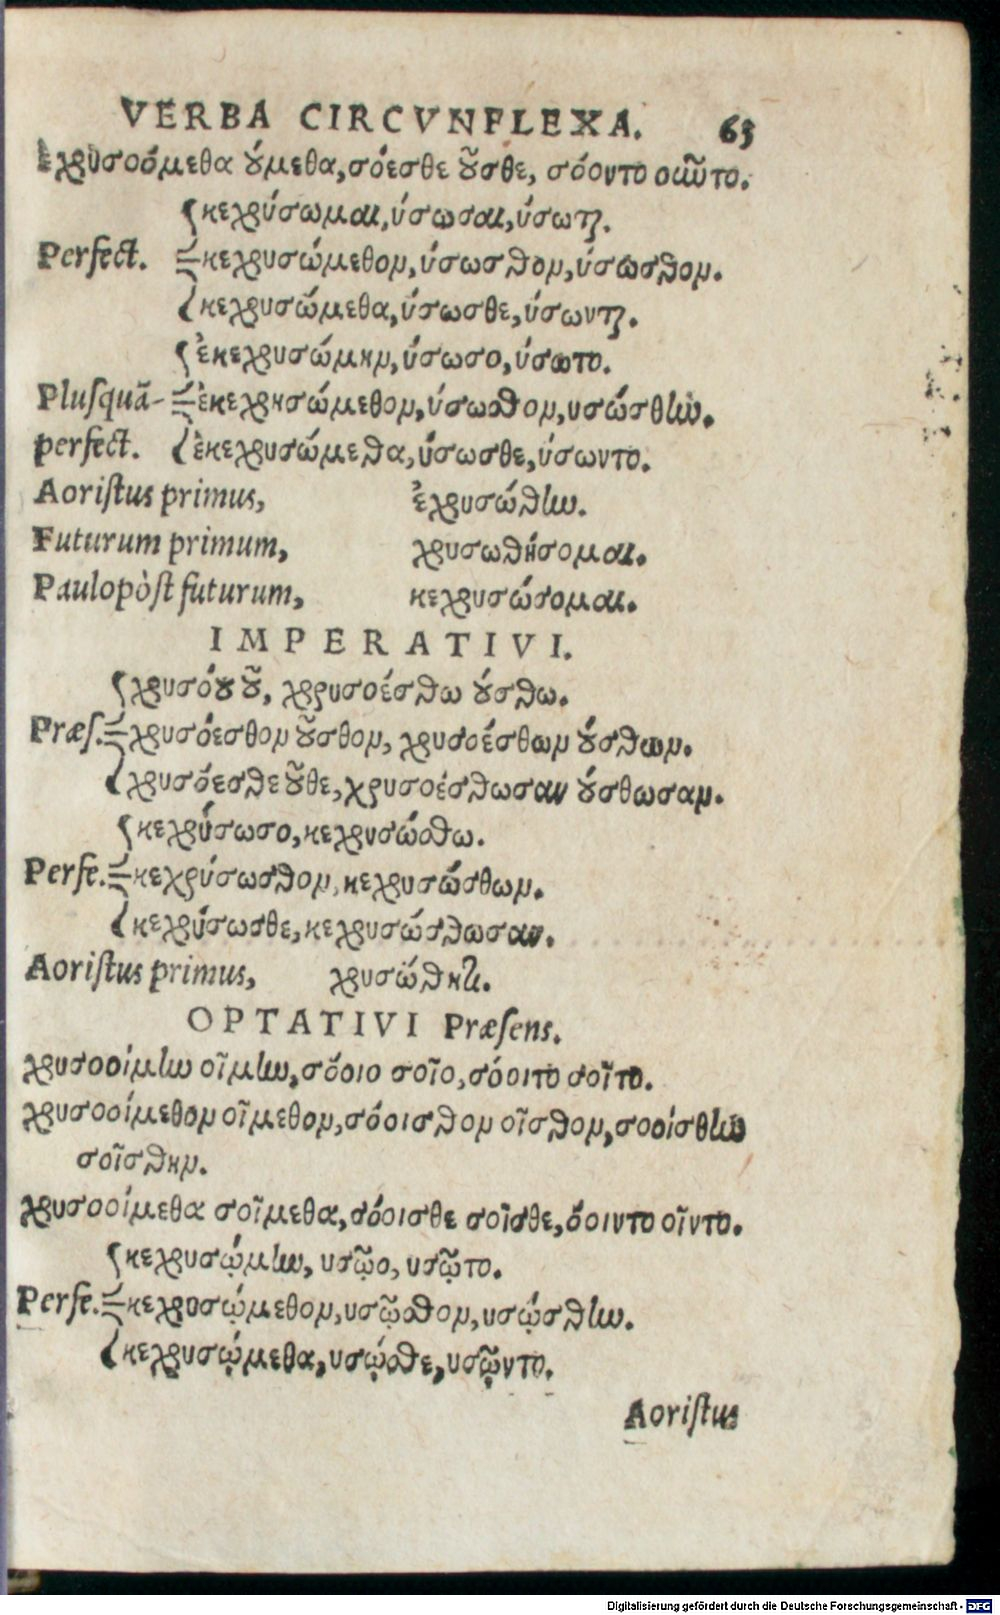 VERBA CIRCVNFLEXA. 63
ἐχρυσοόμεθα ȣ́μεθα, σόεσθε ȣ͂σθε, σόοντο οιῶ͂το.
κεχρύσωμαι, ύσωσαι, ύσωται.
Perfect. κεχρυσώμεθον, ύσωσθον, ύσωσθον.
κεχρυσώμεθα, ύσωσθε, ύσωνται.
ἐκεχρυσώμην, ύσωσο, ύσωτο.
Plusquã- ἐκεχρησώμεθον, ύσωσθον, υσώσθην.
perfect. ἐκεχρυσώμεθα, ύσωσθε, ύσωντο.
Aoriſtus primus, ἐχρυσώθην.
Futurum primum, χρυσωθήσομαι.
Paulopòſt futurum, κεχρυσώσομαι.
IMPERATIVI.
χρυσόȣ ȣ͂, χρυσοέσθω ȣ́σθω.
Præſ. χρυσόεσθον ȣ͂σθον, χρυσοέσθων ȣ́σθων.
χρυσόεσθε ȣ͂θε, χρυσοέσθωσαν ȣ́σθωσαν.
κεχρύσωσο, κεχρυσώσθω.
Perfe. κεχρύσωσθον, κεχρυσώσθων.
κεχρύσωσθε, κεχρυσώσθωσαν.
Aoriſtus primus, χρυσώθητι.
OPTATIVI Præſens.
χρυσοοίμην οῖμην, σόοιο σοῖο, σόοιτο σοῖτο.
χρυσοοίμεθον οῖμεθον, σόοισθον οῖσθον, σοοίσθην
σοῖσθην.
χρυσοοίμεθα σοῖμεθα, σόοισθε σοῖσθε, όοιντο οῖντο.
κεχρυσῴμην, υσῷο, υσῷτο.
Perfe. κεχρυσῴμεθον, υσῷσθον, υσῴσθην.
κεχρυσῴμεθα, υσῴσθε, υσῷντο.
Aoriſtus
Digitalisierung gefördert durch die Deutsche Forschungsgemeinschaft - DFG